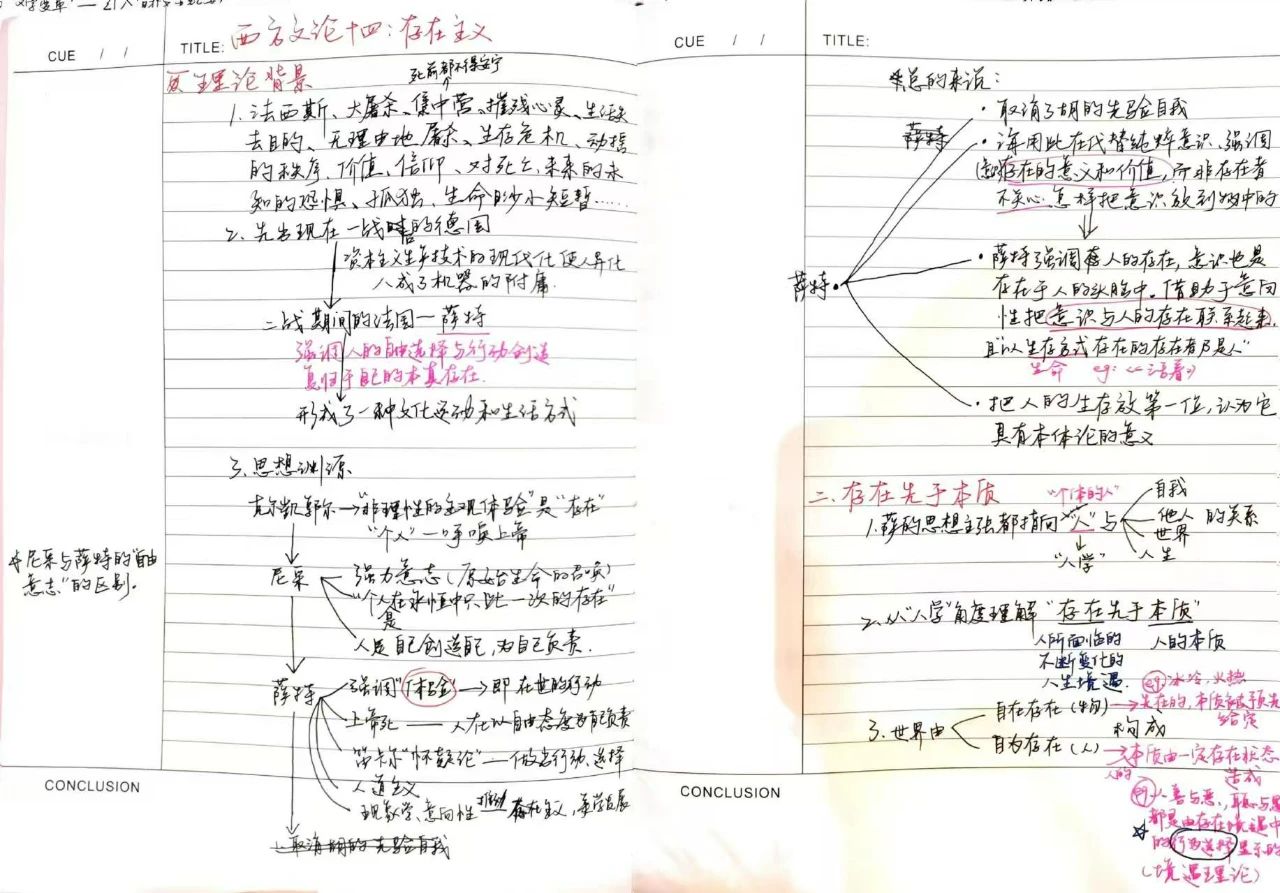 CUE / /
TITLE: 西方文论十四:存在主义
一、理论背景
死前都不得安宁
1. 法西斯、大屠杀、集中营、摧残心灵、生活失
去目的、无理由地屠杀、生存危机、动摇
的秩序、价值、信仰、对死亡、未来的未
知的恐惧、孤独、生命的渺小短暂……
2. 先出现在一战的德国
资本主义生产技术的现代化使人异化
人成了机器的附庸
二战期间的法国—萨特
强调人的自由选择与行动创造
复归于自己的本真存在.
形成了一种文化运动和生活方式
3. 思想渊源
克尔凯郭尔→"非理性的主观体验"是"存在"
"个人"—呼唤上帝
尼采
强力意志(原始生命的召唤)
"个人在永恒中只此一次的存在"
是
人是自己创造自己,为自己负责.
☆尼采与萨特的"自由
意志"的区别.
萨特
强调"体验"→即在世的行动
上帝死——人在以自由态度为自己负责
笛卡尔"怀疑论"—做出行动、选择
人道主义
现象学、意向性 推动 存在主义,美学发展
1. 取消胡的先验自我
CONCLUSION
CUE / /
TITLE:
☆总的来说:
·取消了胡的先验自我
萨特
·海用此在代替纯粹意识、强调
存在的意义和价值,所非存在者
不关心怎样把意识放到的中的
萨特·
·萨特强调人的存在,意识也是
存在于人的头脑中。借助于意向
性把意识与人的存在联系起来,
且"以人生存方式存在的存在者乃是人"
生命 eg:《活着》
·把人的生存放第一位,认为它
具有本体论的意义
二、存在先于本质
"个体的人"
1. 萨的思想主张都指向"人"与
自我
他人 的关系
世界
人生
"人学"
2. 从"人学"角度理解"存在先于本质"
人所面临的 人的本质
不断变化的
人生境遇.
eg 水冷,火热
3. 世界由
自在存在(物)→先在的,本质被预先
给定
构成
自为存在(人)→本质由一定存在状态
人的 造成
eg 人善与恶,
都是由存在境遇中
☆的行为选择显示的
(境遇理论)
CONCLUSION